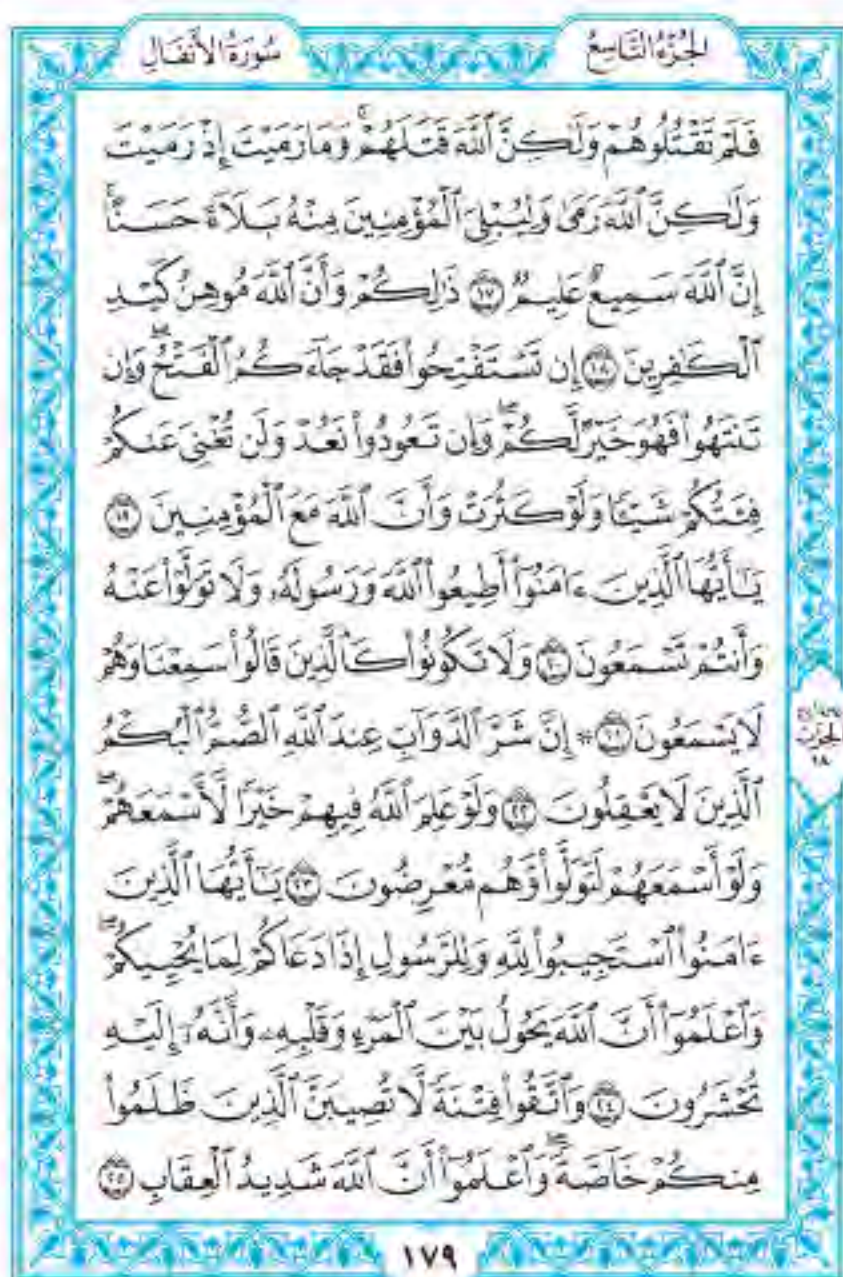 الجُزْءُ التَّاسِعُ
سُورَةُ الأَنفَالِ
فَلَمْ تَقْتُلُوهُمْ وَلَٰكِنَّ ٱللَّهَ قَتَلَهُمْ ۚ وَمَا رَمَيْتَ إِذْ رَمَيْتَ
وَلَٰكِنَّ ٱللَّهَ رَمَىٰ وَلِيُبْلِيَ ٱلْمُؤْمِنِينَ مِنْهُ بَلَآءً حَسَنًا ۚ
إِنَّ ٱللَّهَ سَمِيعٌ عَلِيمٌ ١٧ ذَٰلِكُمْ وَأَنَّ ٱللَّهَ مُوهِنُ كَيْدِ
ٱلْكَٰفِرِينَ ١٨ إِن تَسْتَفْتِحُوا۟ فَقَدْ جَآءَكُمُ ٱلْفَتْحُ ۖ وَإِن
تَنتَهُوا۟ فَهُوَ خَيْرٌ لَّكُمْ ۖ وَإِن تَعُودُوا۟ نَعُدْ وَلَن تُغْنِيَ عَنكُمْ
فِئَتُكُمْ شَيْـًٔا وَلَوْ كَثُرَتْ وَأَنَّ ٱللَّهَ مَعَ ٱلْمُؤْمِنِينَ ١٩
يَٰٓأَيُّهَا ٱلَّذِينَ ءَامَنُوٓا۟ أَطِيعُوا۟ ٱللَّهَ وَرَسُولَهُۥ وَلَا تَوَلَّوْا۟ عَنْهُ
وَأَنتُمْ تَسْمَعُونَ ٢٠ وَلَا تَكُونُوا۟ كَٱلَّذِينَ قَالُوا۟ سَمِعْنَا وَهُمْ
لَا يَسْمَعُونَ ٢١ ۞ إِنَّ شَرَّ ٱلدَّوَآبِّ عِندَ ٱللَّهِ ٱلصُّمُّ ٱلْبُكْمُ
ٱلَّذِينَ لَا يَعْقِلُونَ ٢٢ وَلَوْ عَلِمَ ٱللَّهُ فِيهِمْ خَيْرًا لَّأَسْمَعَهُمْ ۖ
وَلَوْ أَسْمَعَهُمْ لَتَوَلَّوا۟ وَّهُم مُّعْرِضُونَ ٢٣ يَٰٓأَيُّهَا ٱلَّذِينَ
ءَامَنُوا۟ ٱسْتَجِيبُوا۟ لِلَّهِ وَلِلرَّسُولِ إِذَا دَعَاكُمْ لِمَا يُحْيِيكُمْ ۖ
وَٱعْلَمُوٓا۟ أَنَّ ٱللَّهَ يَحُولُ بَيْنَ ٱلْمَرْءِ وَقَلْبِهِۦ وَأَنَّهُۥٓ إِلَيْهِ
تُحْشَرُونَ ٢٤ وَٱتَّقُوا۟ فِتْنَةً لَّا تُصِيبَنَّ ٱلَّذِينَ ظَلَمُوا۟
مِنكُمْ خَآصَّةً ۖ وَٱعْلَمُوٓا۟ أَنَّ ٱللَّهَ شَدِيدُ ٱلْعِقَابِ ٢٥
الحِزْب
١٨
١٧٩